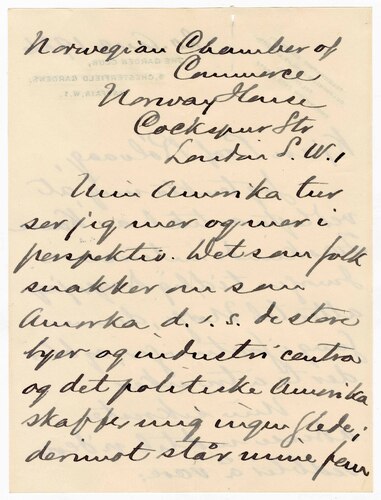 Norwegian Chamber of
Commerce
Norway House
Cockspur Str
London S.W.1
Min Amerika tur
ser jeg mer og mer i
perspektiv. Det som folk
snakker om som
Amerika d. v. s. de store
byer og industri centra
og det politiske Amerika
skaffer mig ingen glede;
derimot står mine fem